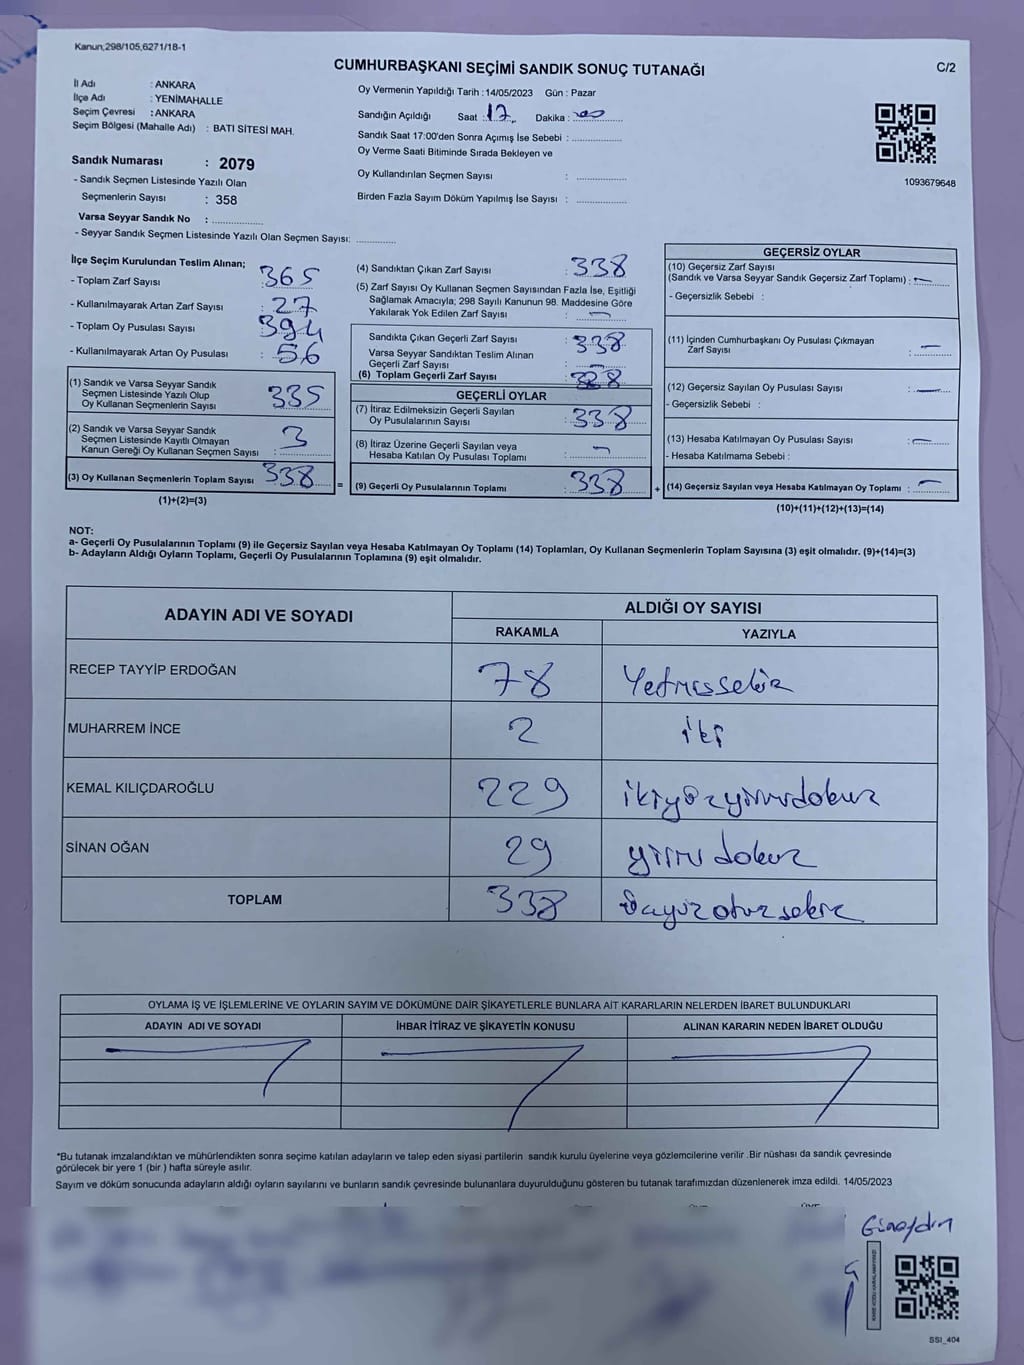 Kanun,298/105,6271/18-1
CUMHURBAŞKANI SEÇİMİ SANDIK SONUÇ TUTANAĞI
C/2
İl Adı : ANKARA
İlçe Adı : YENİMAHALLE
Seçim Çevresi : ANKARA
Seçim Bölgesi (Mahalle Adı) : BATI SİTESİ MAH.
Sandık Numarası : 2079
- Sandık Seçmen Listesinde Yazılı Olan
Seçmenlerin Sayısı : 358
Varsa Seyyar Sandık No :
- Seyyar Sandık Seçmen Listesinde Yazılı Olan Seçmen Sayısı:
Oy Vermenin Yapıldığı Tarih : 14/05/2023 Gün : Pazar
Sandığın Açıldığı Saat : 17 Dakika : 00
Sandık Saat 17:00'den Sonra Açımış İse Sebebi :
Oy Verme Saati Bitiminde Sırada Bekleyen ve
Oy Kullandırılan Seçmen Sayısı :
Birden Fazla Sayım Döküm Yapılmış İse Sayısı :
1093679648
İlçe Seçim Kurulundan Teslim Alınan;
- Toplam Zarf Sayısı : 365
- Kullanılmayarak Artan Zarf Sayısı : 27
- Toplam Oy Pusulası Sayısı : 394
- Kullanılmayarak Artan Oy Pusulası : 56
(1) Sandık ve Varsa Seyyar Sandık
Seçmen Listesinde Yazılı Olup
Oy Kullanan Seçmenlerin Sayısı : 335
(2) Sandık ve Varsa Seyyar Sandık
Seçmen Listesinde Kayıtlı Olmayan
Kanun Gereği Oy Kullanan Seçmen Sayısı : 3
(3) Oy Kullanan Seçmenlerin Toplam Sayısı : 338
(1)+(2)=(3)
(4) Sandıktan Çıkan Zarf Sayısı : 338
(5) Zarf Sayısı Oy Kullanan Seçmen Sayısından Fazla İse, Eşitliği
Sağlamak Amacıyla; 298 Sayılı Kanunun 98. Maddesine Göre
Yakılarak Yok Edilen Zarf Sayısı : —
Sandıkta Çıkan Geçerli Zarf Sayısı : 338
Varsa Seyyar Sandıktan Teslim Alınan
Geçerli Zarf Sayısı : —
(6) Toplam Geçerli Zarf Sayısı : 338
GEÇERLİ OYLAR
(7) İtiraz Edilmeksizin Geçerli Sayılan
Oy Pusulalarının Sayısı : 338
(8) İtiraz Üzerine Geçerli Sayılan veya
Hesaba Katılan Oy Pusulası Toplamı : —
= (9) Geçerli Oy Pusulalarının Toplamı : 338
GEÇERSİZ OYLAR
(10) Geçersiz Zarf Sayısı
(Sandık ve Varsa Seyyar Sandık Geçersiz Zarf Toplamı) : —
- Geçersizlik Sebebi :
(11) İçinden Cumhurbaşkanı Oy Pusulası Çıkmayan
Zarf Sayısı : —
(12) Geçersiz Sayılan Oy Pusulası Sayısı : —
- Geçersizlik Sebebi :
(13) Hesaba Katılmayan Oy Pusulası Sayısı : —
- Hesaba Katılmama Sebebi :
+ (14) Geçersiz Sayılan veya Hesaba Katılmayan Oy Toplamı : —
(10)+(11)+(12)+(13)=(14)
NOT:
a- Geçerli Oy Pusulalarının Toplamı (9) ile Geçersiz Sayılan veya Hesaba Katılmayan Oy Toplamı (14) Toplamları, Oy Kullanan Seçmenlerin Toplam Sayısına (3) eşit olmalıdır. (9)+(14)=(3)
b- Adayların Aldığı Oyların Toplamı, Geçerli Oy Pusulalarının Toplamına (9) eşit olmalıdır.
ADAYIN ADI VE SOYADI ALDIĞI OY SAYISI
RAKAMLA YAZIYLA
RECEP TAYYİP ERDOĞAN 78 Yetmişsekiz
MUHARREM İNCE 2 iki
KEMAL KILIÇDAROĞLU 229 ikiyüzyirmidokuz
SİNAN OĞAN 29 yirmi dokuz
TOPLAM 338 üçyüzotuzsekiz
OYLAMA İŞ VE İŞLEMLERİNE VE OYLARIN SAYIM VE DÖKÜMÜNE DAİR ŞİKAYETLERLE BUNLARA AİT KARARLARIN NELERDEN İBARET BULUNDUKLARI
ADAYIN ADI VE SOYADI İHBAR İTİRAZ VE ŞİKAYETİN KONUSU ALINAN KARARIN NEDEN İBARET OLDUĞU
*Bu tutanak imzalandıktan ve mühürlendikten sonra seçime katılan adayların ve talep eden siyasi partilerin sandık kurulu üyelerine veya gözlemcilerine verilir .Bir nüshası da sandık çevresinde
görülecek bir yere 1 (bir ) hafta süreyle asılır.
Sayım ve döküm sonucunda adayların aldığı oyların sayılarını ve bunların sandık çevresinde bulunanlara duyurulduğunu gösteren bu tutanak tarafımızdan düzenlenerek imza edildi. 14/05/2023
Günaydın
SSI_404